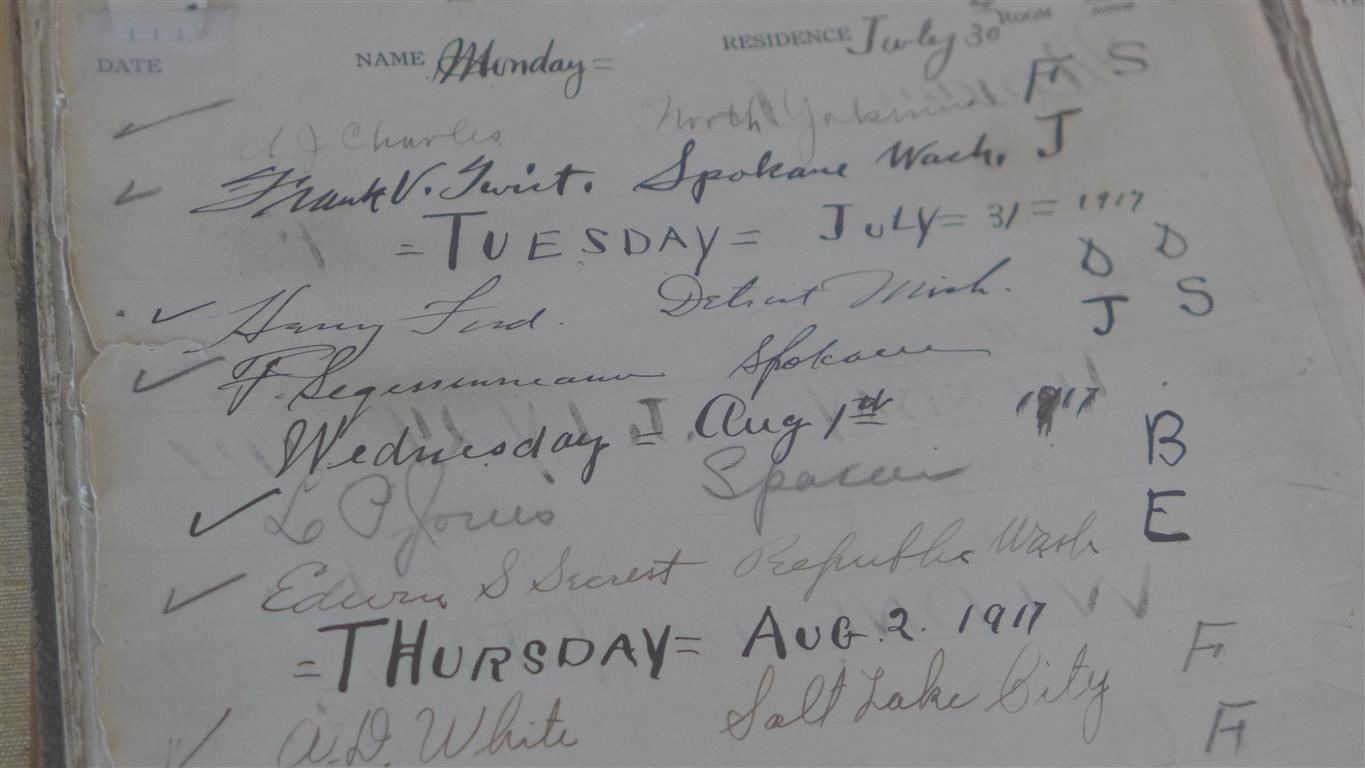 DATE NAME Monday = RESIDENCE July 30 ROOM
A J Charles North Yakima F S
Frank V. Twist. Spokane Wash. J
= TUESDAY = JULY = 31 = 1917
Harry Ford. Detroit Mich. D D
F. Segessenmann Spokane J S
Wednesday = Aug 1st 1917
L P Jones Spokane B
Edwin S Secrest Republic Wash E
= THURSDAY = AUG. 2. 1917
A.D. White Salt Lake City F
F